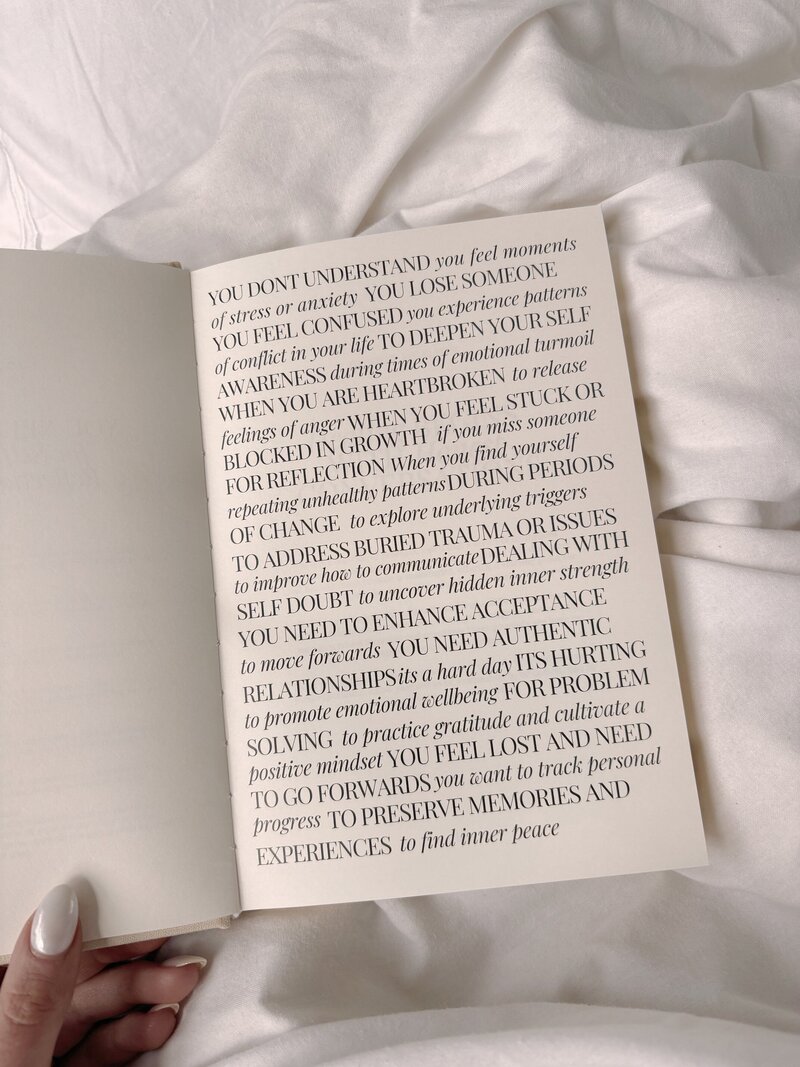 YOU DONT UNDERSTAND you feel moments
of stress or anxiety YOU LOSE SOMEONE
YOU FEEL CONFUSED you experience patterns
of conflict in your life TO DEEPEN YOUR SELF
AWARENESS during times of emotional turmoil
WHEN YOU ARE HEARTBROKEN to release
feelings of anger WHEN YOU FEEL STUCK OR
BLOCKED IN GROWTH if you miss someone
FOR REFLECTION When you find yourself
repeating unhealthy patterns DURING PERIODS
OF CHANGE to explore underlying triggers
TO ADDRESS BURIED TRAUMA OR ISSUES
to improve how to communicate DEALING WITH
SELF DOUBT to uncover hidden inner strength
YOU NEED TO ENHANCE ACCEPTANCE
to move forwards YOU NEED AUTHENTIC
RELATIONSHIPS its a hard day ITS HURTING
to promote emotional wellbeing FOR PROBLEM
SOLVING to practice gratitude and cultivate a
positive mindset YOU FEEL LOST AND NEED
TO GO FORWARDS you want to track personal
progress TO PRESERVE MEMORIES AND
EXPERIENCES to find inner peace